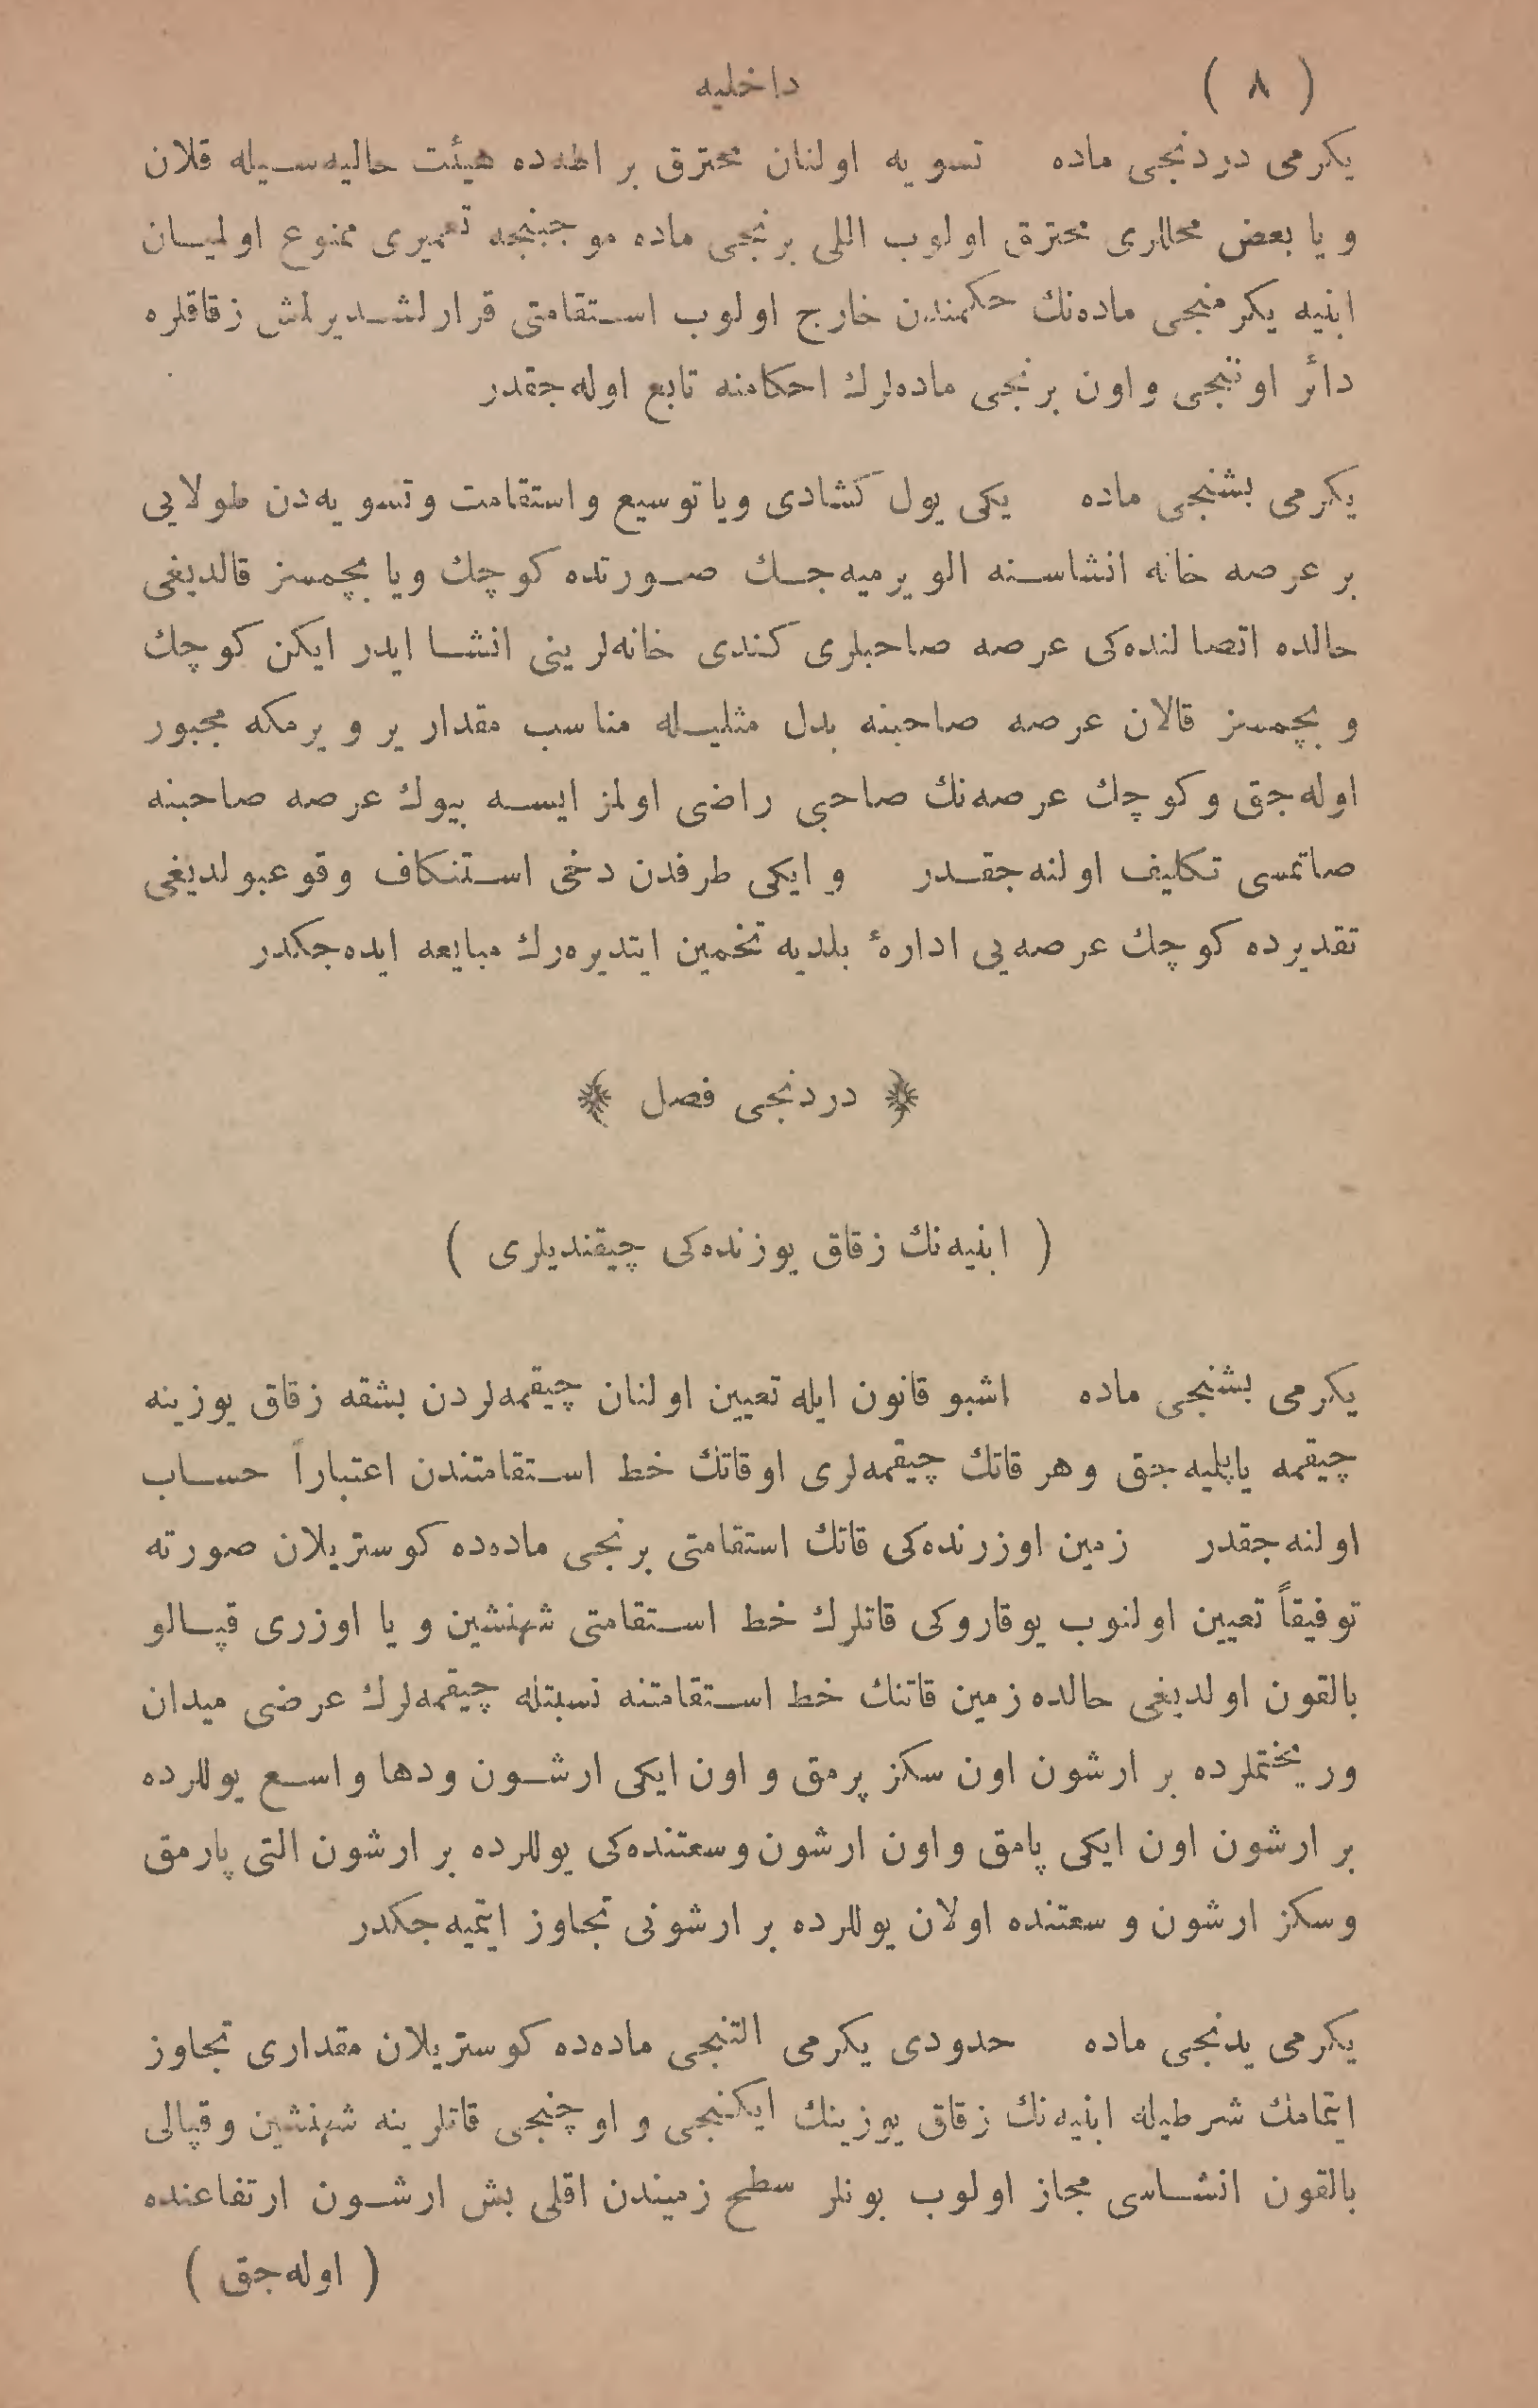 ( ٨ ) داخليه
يكرمى دردنجى ماده تسويه اولنان محترق بر اطه‌ده هيئت حاليه‌سيله قلان
و يا بعض محللرى محترق اولوب اللى برنجى ماده موجبنجه تعميرى ممنوع اولميان
ابنيه يكرمنجى ماده‌نك حكمندن خارج اولوب استقامتى قرارلشديرلمش زقاقلره
دائر اوننجى و اون برنجى ماده‌لرك احكامنه تابع اوله‌جقدر
يكرمى بشنجى ماده يكى يول كشادى ويا توسيع و استقامت و تسويه‌دن طولايى
بر عرصه خانه انشاسنه الويرميه‌جك صورتده كوچك ويا بچمسز قالديغى
حالده اتصالنده‌كى عرصه صاحبلرى كندى خانه‌لرينى انشا ايدر ايكن كوچك
و بچمسز قالان عرصه صاحبنه بدل مثليله مناسب مقدار ير ويرمكه مجبور
اوله‌جق و كوچك عرصه‌نك صاحبى راضى اولمز ايسه بيوك عرصه صاحبنه
صاتمسى تكليف اولنه‌جقدر و ايكى طرفدن دخى استنكاف وقوعبولديغى
تقديرده كوچك عرصه‌يى ادارهٔ بلديه تخمين ايتديره‌رك مبايعه ايده‌جكدر
﴿ دردنجى فصل ﴾
( ابنيه‌نك زقاق يوزنده‌كى چيقنديلرى )
يكرمى بشنجى ماده اشبو قانون ايله تعيين اولنان چيقمه‌لردن بشقه زقاق يوزينه
چيقمه ياپليه‌جق و هر قاتك چيقمه‌لرى اوقاتك خط استقامتندن اعتباراً حساب
اولنه‌جقدر زمين اوزرنده‌كى قاتك استقامتى برنجى ماده‌ده كوستريلان صورته
توفيقاً تعيين اولنوب يوقاروكى قاتلرك خط استقامتى شهنشين و يا اوزرى قپالو
بالقون اولديغى حالده زمين قاتنك خط استقامتنه نسبتله چيقمه‌لرك عرضى ميدان
وريختملرده بر ارشون اون سكز پرمق و اون ايكى ارشون ودها واسع يوللرده
بر ارشون اون ايكى پامق و اون ارشون وسعتنده‌كى يوللرده بر ارشون التى پارمق
وسكز ارشون وسعتنده اولان يوللرده بر ارشونى تجاوز ايتميه‌جكدر
يكرمى يدنجى ماده حدودى يكرمى التنجى ماده‌ده كوستريلان مقدارى تجاوز
ايتمامك شرطيله ابنيه‌نك زقاق يوزينك ايكنجى و اوچنجى قاتلرينه شهنشين وقپالى
بالقون انشاسى مجاز اولوب بونلر سطح زميندن اقلى بش ارشون ارتفاعنده
( اوله‌جق )